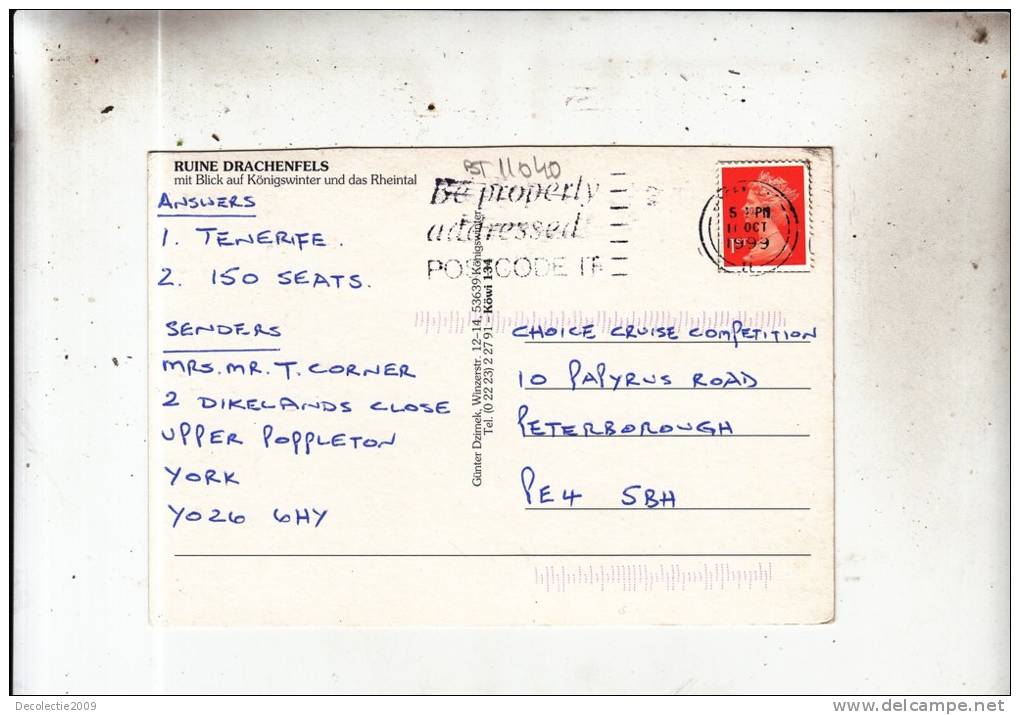 RUINE DRACHENFELS
mit Blick auf Königswinter und das Rheintal
ANSWERS
1. TENERIFE.
2. 150 SEATS.
SENDERS
MRS. MR. T. CORNER
2 DIKELANDS CLOSE
UPPER POPPLETON
YORK
YO26 6HY
BT 11040
Be properly
addressed
POSTCODE IT
Günter Dzimek, Winzerstr. 12-14, 53639 Königswinter
Tel. (0 22 23) 2 27 91 – Köwi 134
1ST
5 PM
11 OCT
1999
CHOICE CRUISE COMPETITION
10 PAPYRUS ROAD
PETERBOROUGH
PE4 5BH
Decolectie2009
www.delcampe.net